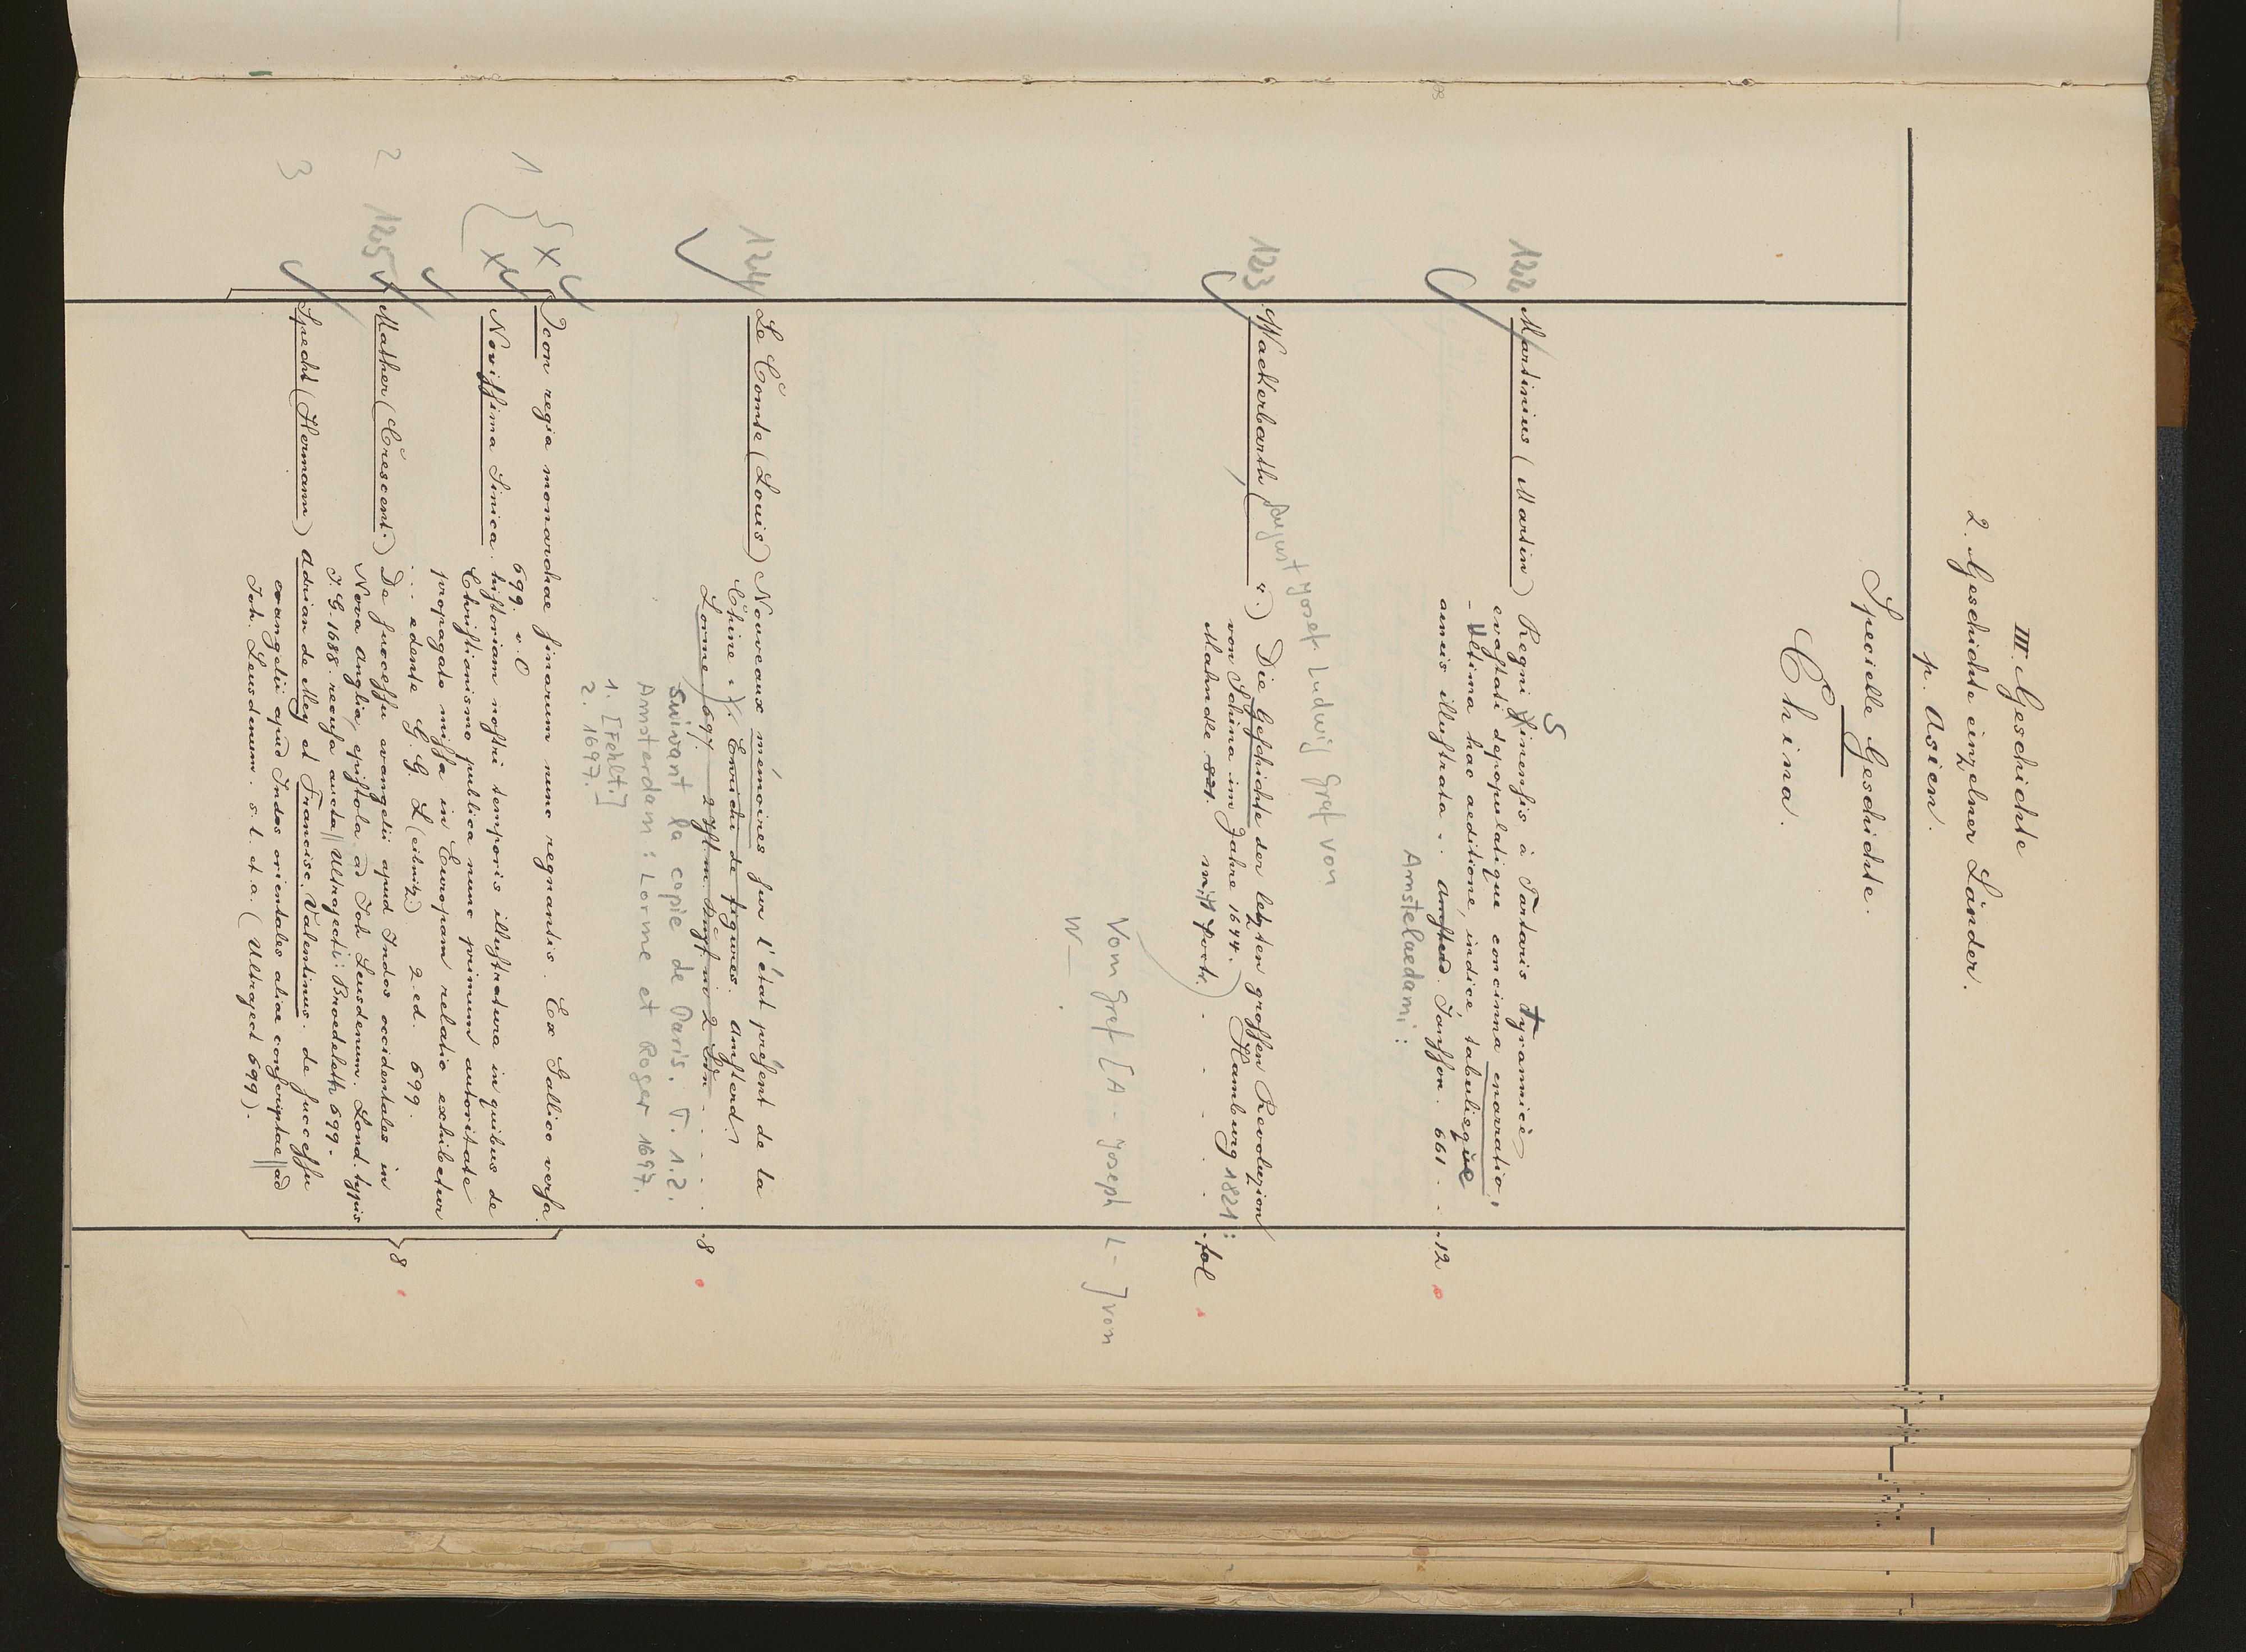 III. Geschichte
2. Geschichte einzelner Länder.
p. Asien.
Specielle Geschichte.
China.
122 Martinius (Martin) Regni Sinensis à Tartaris Tyrannicè
evastati depopulatique concinna enarratio,
- Ultima hac aeditione, indice, tabulisque
aeneis illustrata .. Amsterd. Jansson. 661 . . - 12
Amstelaedami:
August Josef Ludwig Graf von
123 Wackerbarth ( v.) Die Geschichte der letzten grossen Revoluzion
von Schina im Jahre 1644. Hamburg 1821:
Mahncke 821. mit Portr. . - - . - fol
Vom Graf [A - Joseph L - ] von
W_ .
124 Le Comte (Louis) Nouveaux mémoires sur l'état présent de la
Chine . Enrichi de figures. Amsterd.
Lorme 697. 2 in 2 - 8
Suivant la copie de Paris. T. 1.2.
Amsterdam: Lorme et Roger 1697.
1. [Fehlt.]
2. 1697.
1 x Icon regia monarchae sinarum nunc regnantis. Ex Gallico versa.
699. v. O
x Novissima Sinica historiam nostri temporis illustratura in quibus de
Christianismo publica nunc primum autoritate
propagato missa in Europam relatio exhibetur
... edente G. G. L (eibnitz) 2. ed. 699.
2 125 Mather (Crescent.) De successu evangelii apud Indos occidentales in
Nova Anglia, epistola ad Joh Leusdenum. Lond. typis
J. G. 1688. recusa aucta || Ultrajecti: Broedeleth 699. 8
3 Specht (Hermann) Adrian de Mey et Francisc. Valentinus. de successu
evangelii apud Indos orientales aliae conscriptae || ad
Joh. Leusdenum. s. l. et a. (Ultraject 699).